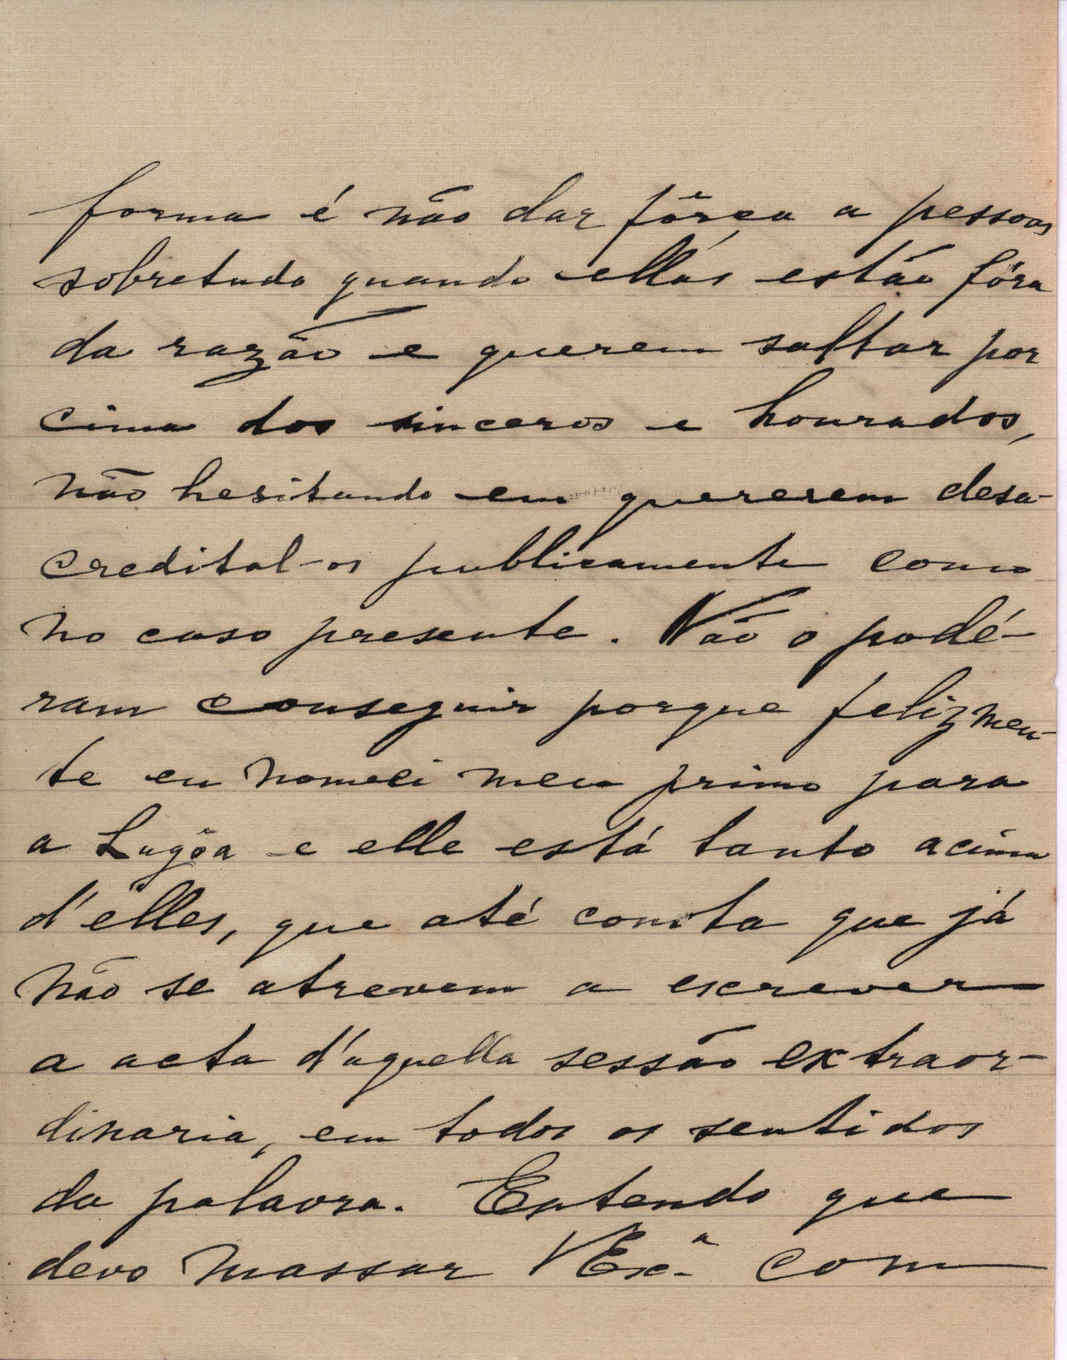 forma é não dar fôrça a pessoas
sobretudo quando ellas estão fóra
da razão e querem saltar por
cima dos sinceros e honrados,
não hesitando em quererem desa-
credital-os publicamente como
no caso presente. Não o podé-
ram conseguir porque felizmen-
te eu nomeei meu primo para
a Lagôa e elle está tanto acima
d'elles, que até consta que já
não se atrevem a escrever
a acta d'aquella sessão extraor-
dinaria, em todos os sentidos
da palavra. Entendo que
devo massar VExª com